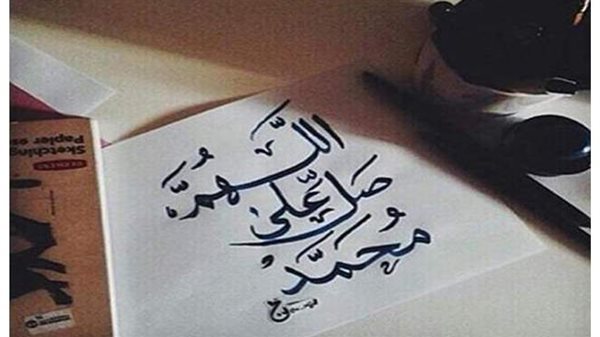 اللَّهُمَّ
صَلِّ عَلَىٰ
مُحَمَّد
Sketching
Papier es